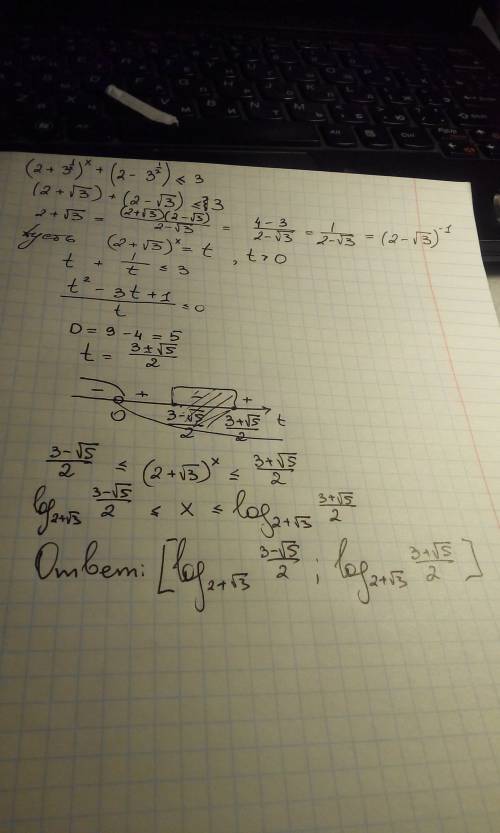 (2 + 3^{1/2})^x + (2 - 3^{1/2}) ≤ 3
(2 + √3) + (2 - √3) ≤ 3
2 + √3 = (2+√3)(2-√3)/(2-√3) = (4-3)/(2-√3) = 1/(2-√3) = (2-√3)^{-1}
Пусть (2+√3)^x = t, t > 0
t + 1/t ≤ 3
(t² - 3t + 1)/t ≤ 0
D = 9 - 4 = 5
t = (3±√5)/2
- + - +
0 (3-√5)/2 (3+√5)/2 t
(3-√5)/2 ≤ (2+√3)^x ≤ (3+√5)/2
log_{2+√3} (3-√5)/2 ≤ x ≤ log_{2+√3} (3+√5)/2
Ответ: [log_{2+√3} (3-√5)/2 ; log_{2+√3} (3+√5)/2]